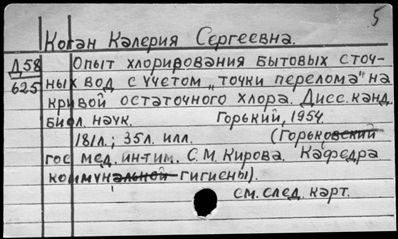 5
Коган Калерия Сергеевна.
Д58
625
Опыт хлорирования бытовых сточ-
ных вод с учетом „точки перелома" на
кривой остаточного хлора. Дисс. канд.
биол. наук. Горький, 1954.
181л.; 35л. илл. (Горьковский
гос мед. ин-тим. С.М. Кирова. Кафедра
коммунальной гигиены).
см. след. карт.